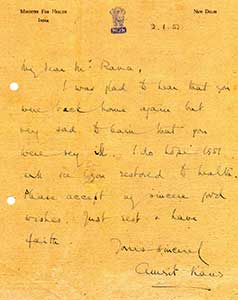 MINISTER FOR HEALTH
INDIA
NEW DELHI
2.1.51
My dear Mr Rana,
I was glad to hear that you
were back home again but
very sad to learn that you
were very ill. I do hope 1951
will see you restored to health.
Please accept my sincere good
wishes. Just rest & have
faith
Yours sincerely
Amrit Kaur